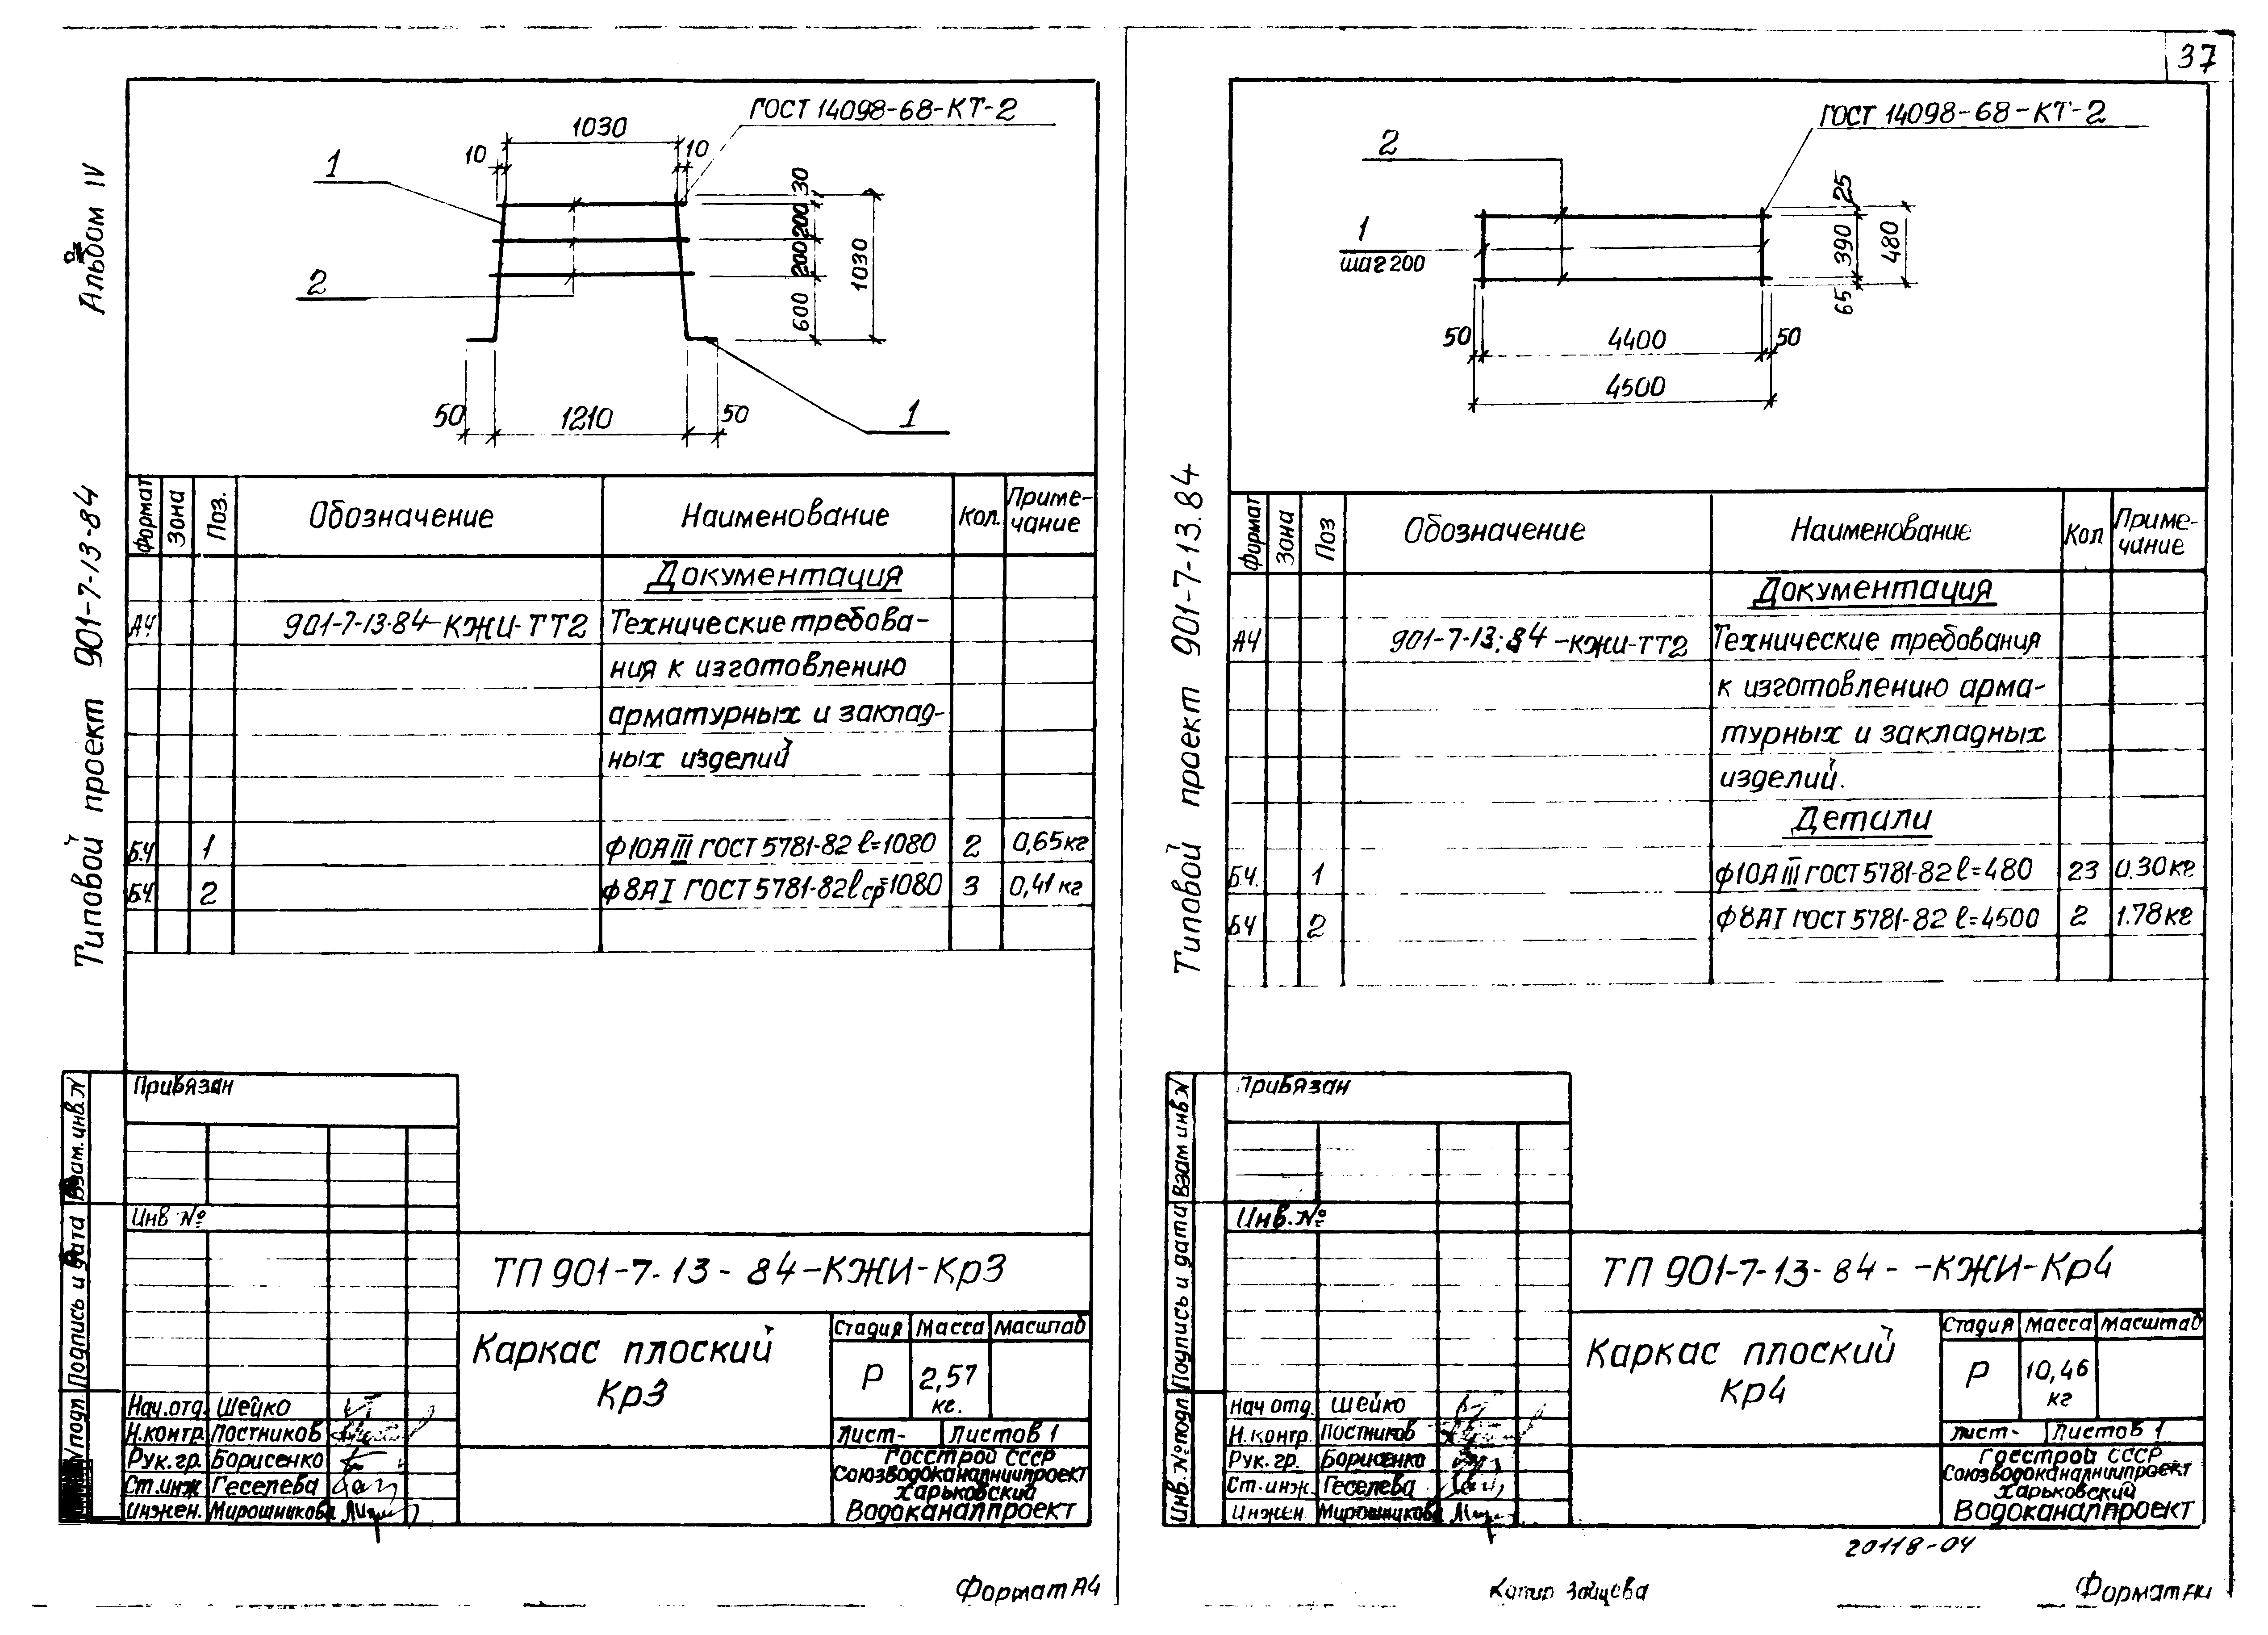 37
Альбом IV
Типовой проект 901-7-13-84
1030
10
10
ГОСТ 14098-68-КТ-2
1
2
30
200
200
600
1030
50
1210
50
1
Формат
Зона
Поз.
Обозначение
Наименование
Кол.
Приме-
чание
Документация
А4
901-7-13-84-КЖИ-ТТ2
Технические требова-
ния к изготовлению
арматурных и заклад-
ных изделий
Б.Ч
1
Ф10АIII ГОСТ 5781-82 ℓ=1080
2
0,65кг
Б.Ч.
2
Ф8АI ГОСТ 5781-82 ℓср=1080
3
0,41 кг
Привязан
Инв №
Взам.инв.N
Подпись и дата
N подл.
ТП 901-7-13-84-КЖИ-Кр3
Каркас плоский
Кр3
Стадия
Масса
Масштаб
Р
2,57
кг.
Лист-
Листов 1
Госстрой СССР
Союзводоканалниипроект
Харьковский
Водоканалпроект
Нач.отд. Шейко
Н.контр. Постников
Рук.гр. Борисенко
Ст.инж Геселева
Инжен. Мирошникова
Формат А4
Типовой проект 901-7-13.84
ГОСТ 14098-68-КТ-2
2
1
шаг 200
25
390
65
480
50
4400
50
4500
Формат
Зона
Поз
Обозначение
Наименование
Кол
Приме-
чание
Документация
А4
901-7-13.84-КЖИ-ТТ2
Технические требования
к изготовлению арма-
турных и закладных
изделий.
Детали
Б.Ч.
1
Ф10АIII ГОСТ 5781-82 ℓ=480
23
0.30кг
Б.Ч
2
Ф8АI ГОСТ 5781-82 ℓ=4500
2
1.78кг
Привязан
Инв.№
Взам инв N
Подпись и дата
Инв.№подл.
ТП 901-7-13-84--КЖИ-Кр4
Каркас плоский
Кр4
Стадия
Масса
Масштаб
Р
10,46
кг
Лист-
Листов 1
Госстрой СССР
Союзводоканалниипроект
Харьковский
Водоканалпроект
Нач отд. Шейко
Н.контр. Постников
Рук.гр. Борисенко
Ст.инж. Геселева
Инжен Мирошникова
20118-04
Копир Зайцева
Формат А4